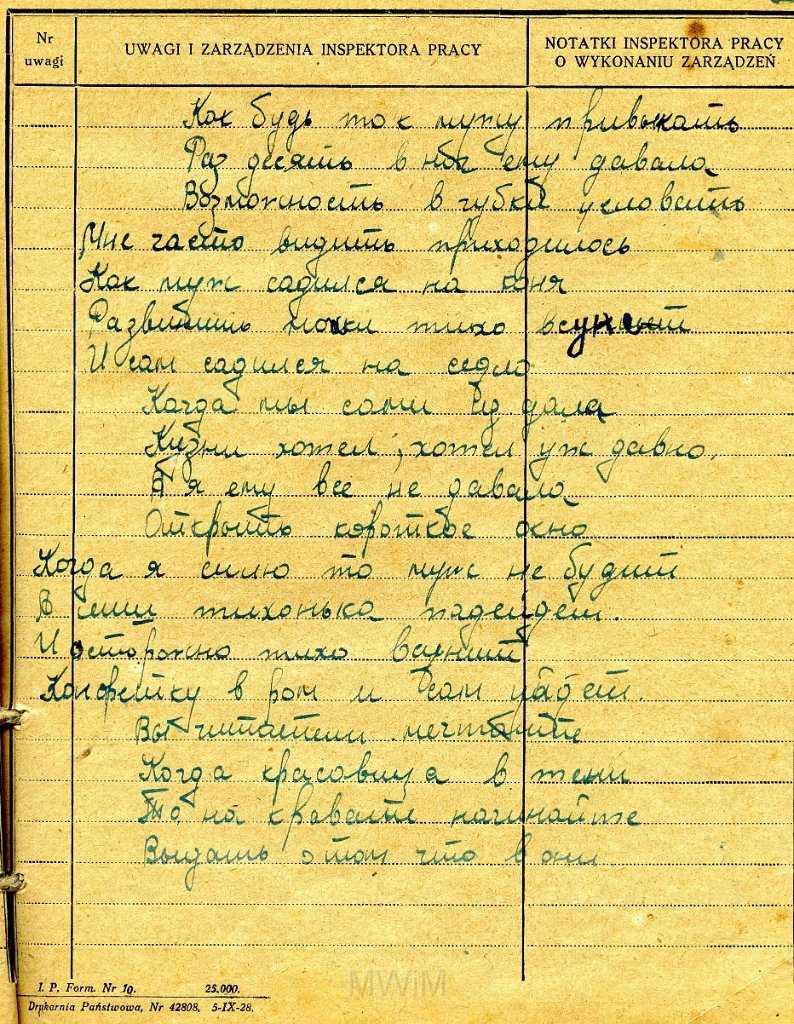 Nr
uwagi
UWAGI I ZARZĄDZENIA INSPEKTORA PRACY
NOTATKI INSPEKTORA PRACY
O WYKONANIU ZARZĄDZEŃ
Как будь то к мужу привыкать
Раз десять в ему давала
Возможность в губки
Мне часто видить приходилось
Как муж садился на коня
тихо
И сам садился на седло
Когда мы сами дала
хотел, хотел уж давно.
А я ему все не давала
Открыть короткое окно
Когда я сплю то муж не будит
В тихонька падейдет.
И осторожно тихо
Конфетку в рот и сам уйдет.
Вы
Когда красавица в тени
То на кровате начинайте
о том что в они
I. P. Form. Nr 10. 25.000.
Drukarnia Państwowa, Nr 42808, 5-IX-28.
MWiM